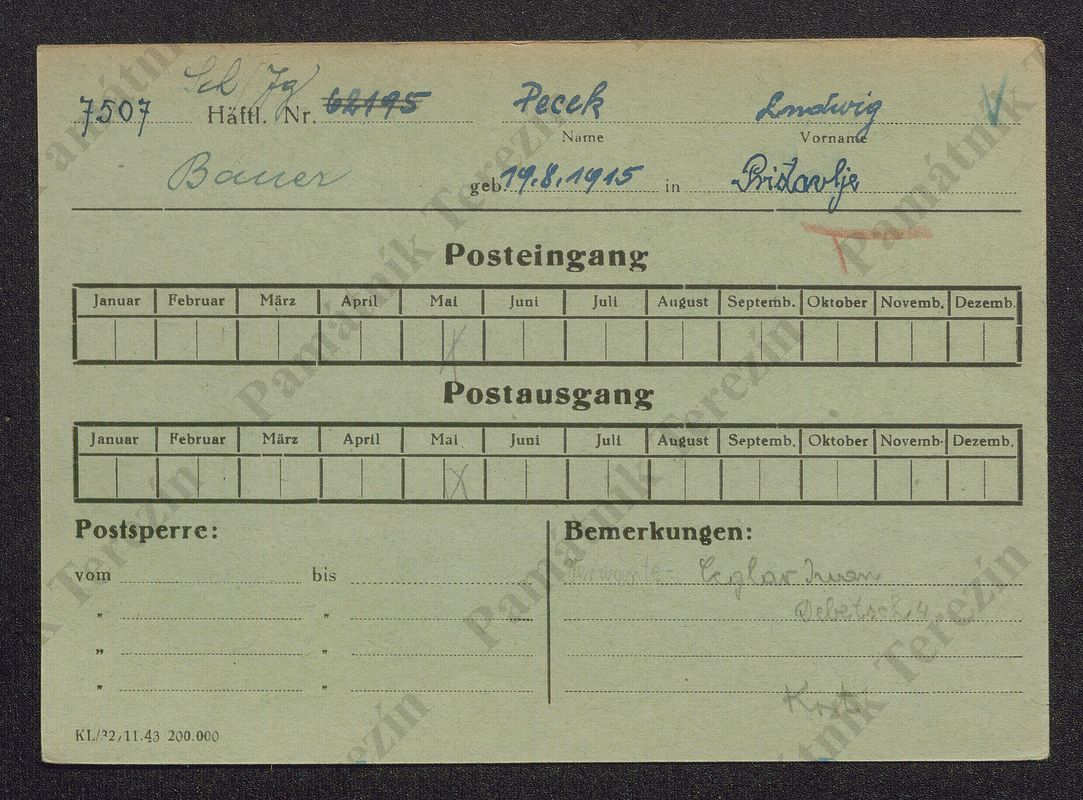 Sch/Jg
7507 Häftl. Nr. 62195 Pecek Ludwig
Name Vorname
Bauer geb. 19.8.1915 in Pristavlje
Posteingang
Januar Februar März April Mai Juni Juli August Septemb. Oktober Novemb. Dezemb.
Postausgang
Januar Februar März April Mai Juni Juli August Septemb. Oktober Novemb. Dezemb.
Postsperre: Bemerkungen:
vom bis Iwan
" " Debetsch 4
" "
" "
KL/32/11.43 200.000
Památník Terezín